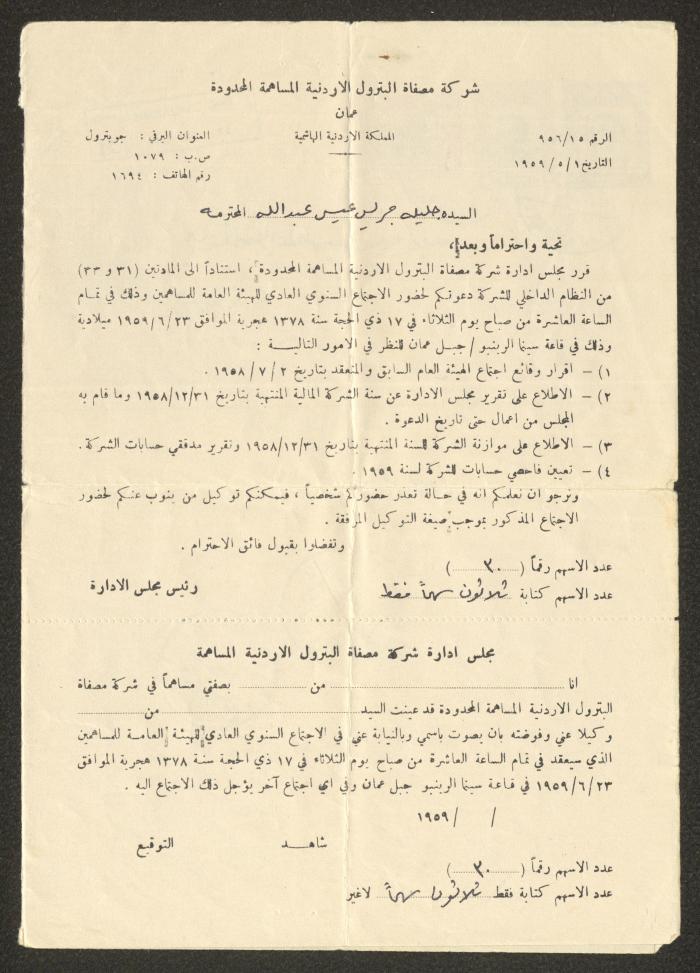 شركة مصفاة البترول الاردنية المساهمة المحدودة
عمان
المملكة الاردنية الهاشمية
الرقم ٩٥٦/١٥
التاريخ ١/٥/١٩٥٩
العنوان البرقي : جوبترول
ص.ب : ١٠٧٩
رقم الهاتف : ١٦٩٤
السيده جليله جريس عيسى عبدالله المحترمه
تحية واحتراماً وبعد،
قرر مجلس ادارة شركة مصفاة البترول الاردنية المساهمة المحدودة، استناداً الى المادتين (٣١ و ٣٣)
من النظام الداخلي للشركة دعوتكم لحضور الاجتماع السنوي العادي للهيئة العامة للمساهمين وذلك في تمام
الساعة العاشرة من صباح يوم الثلاثاء في ١٧ ذي الحجة سنة ١٣٧٨ هجرية الموافق ٢٣/٦/١٩٥٩ ميلادية
وذلك في قاعة سينما الرينبو / جبل عمان للنظر في الامور التالية :
١) – اقرار وقائع اجتماع الهيئة العام السابق والمنعقد بتاريخ ٢ / ٧ / ١٩٥٨ .
٢) – الاطلاع على تقرير مجلس الادارة عن سنة الشركة المالية المنتهية بتاريخ ٣١/١٢/١٩٥٨ وما قام به
المجلس من اعمال حتى تاريخ الدعوة .
٣) – الاطلاع على موازنة الشركة للسنة المنتهية بتاريخ ٣١/١٢/١٩٥٨ وتقرير مدققي حسابات الشركة .
٤) – تعيين فاحصي حسابات للشركة لسنة ١٩٥٩ .
ونرجو ان نعلمكم انه في حالة تعذر حضوركم شخصياً ، فيمكنكم توكيل من ينوب عنكم لحضور
الاجتماع المذكور بموجب صيغة التوكيل المرفقة .
وتفضلوا بقبول فائق الاحترام .
عدد الاسهم رقماً ( ٣٠ )
عدد الاسهم كتابة ثلاثون سهماً فقط
رئيس مجلس الادارة
مجلس ادارة شركة مصفاة البترول الاردنية المساهمة
انا من بصفتي مساهماً في شركة مصفاة
البترول الاردنية المساهمة المحدودة قد عينت السيد من
وكيلا عني وفوضته بان يصوت باسمي وبالنيابة عني في الاجتماع السنوي العادي للهيئة العامة للمساهمين
الذي سيعقد في تمام الساعة العاشرة من صباح يوم الثلاثاء في ١٧ ذي الحجة سنة ١٣٧٨ هجرية الموافق
٢٣/٦/١٩٥٩ في قاعة سينما الرينبو جبل عمان وفي اي اجتماع آخر يؤجل ذلك الاجتماع اليه .
/ / ١٩٥٩
شاهد التوقيع
عدد الاسهم رقماً ( ٣٠ )
عدد الاسهم كتابة فقط ثلاثون سهماً لاغير